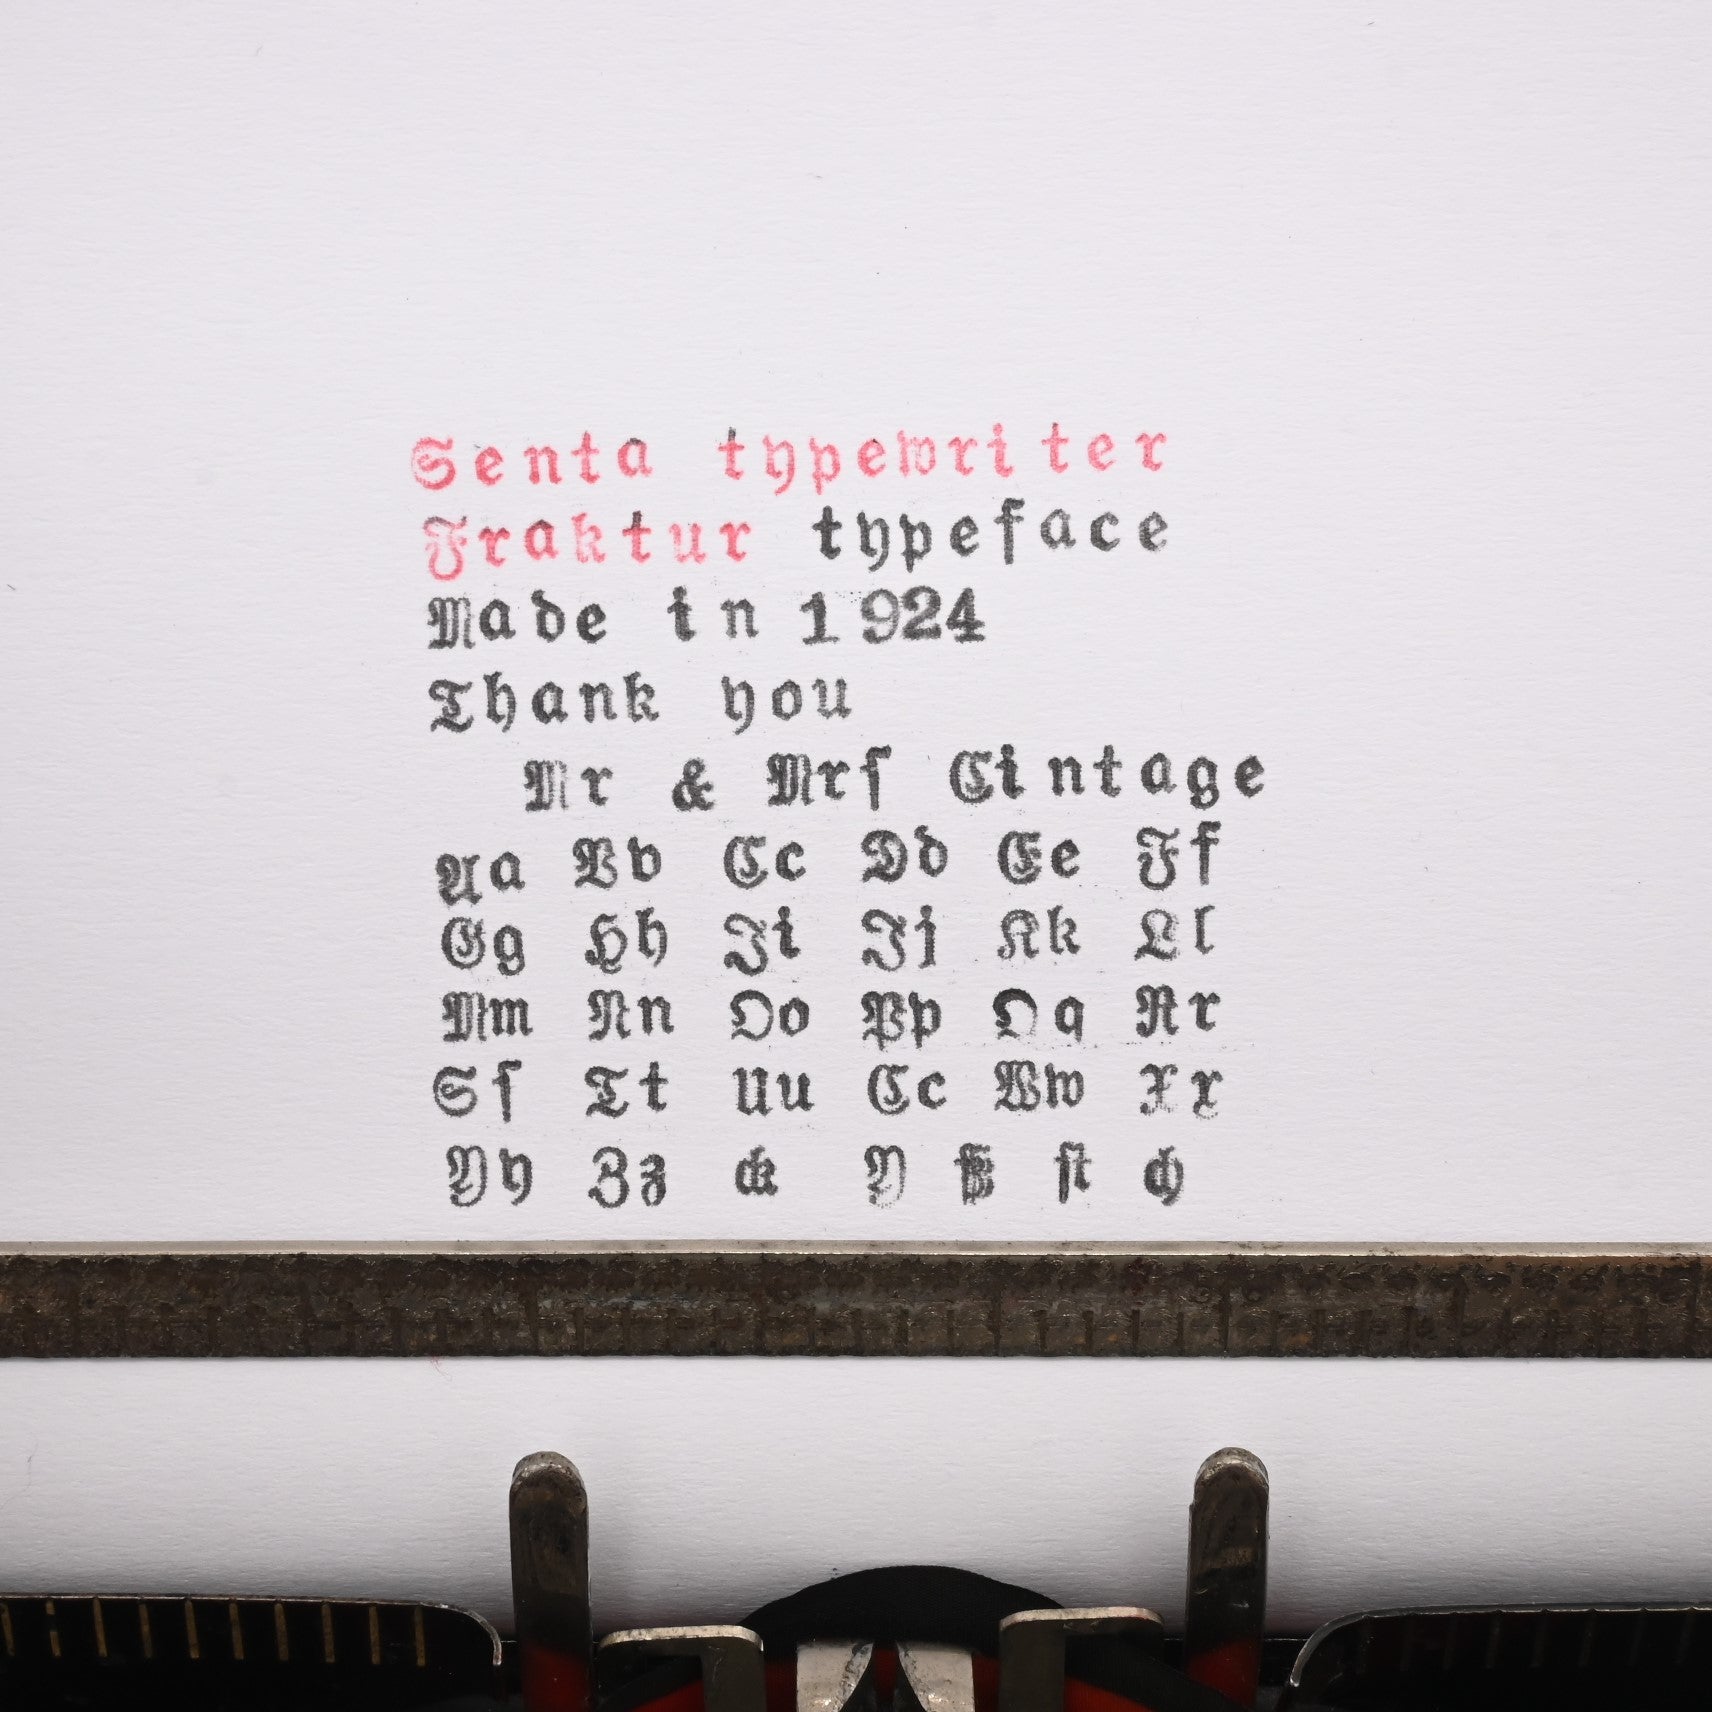 Senta typewriter
Fraktur typeface
Made in 1924
Thank you
Mr & Mrſ Cintage
Aa Vv Cc Dd Ee Ff
Gg Hh Ji Jj Kk Ll
Mm Nn Oo Pp Qq Rr
Sſ Tt Uu Cc Ww Xx
Yy Zz ck Y ſt ch